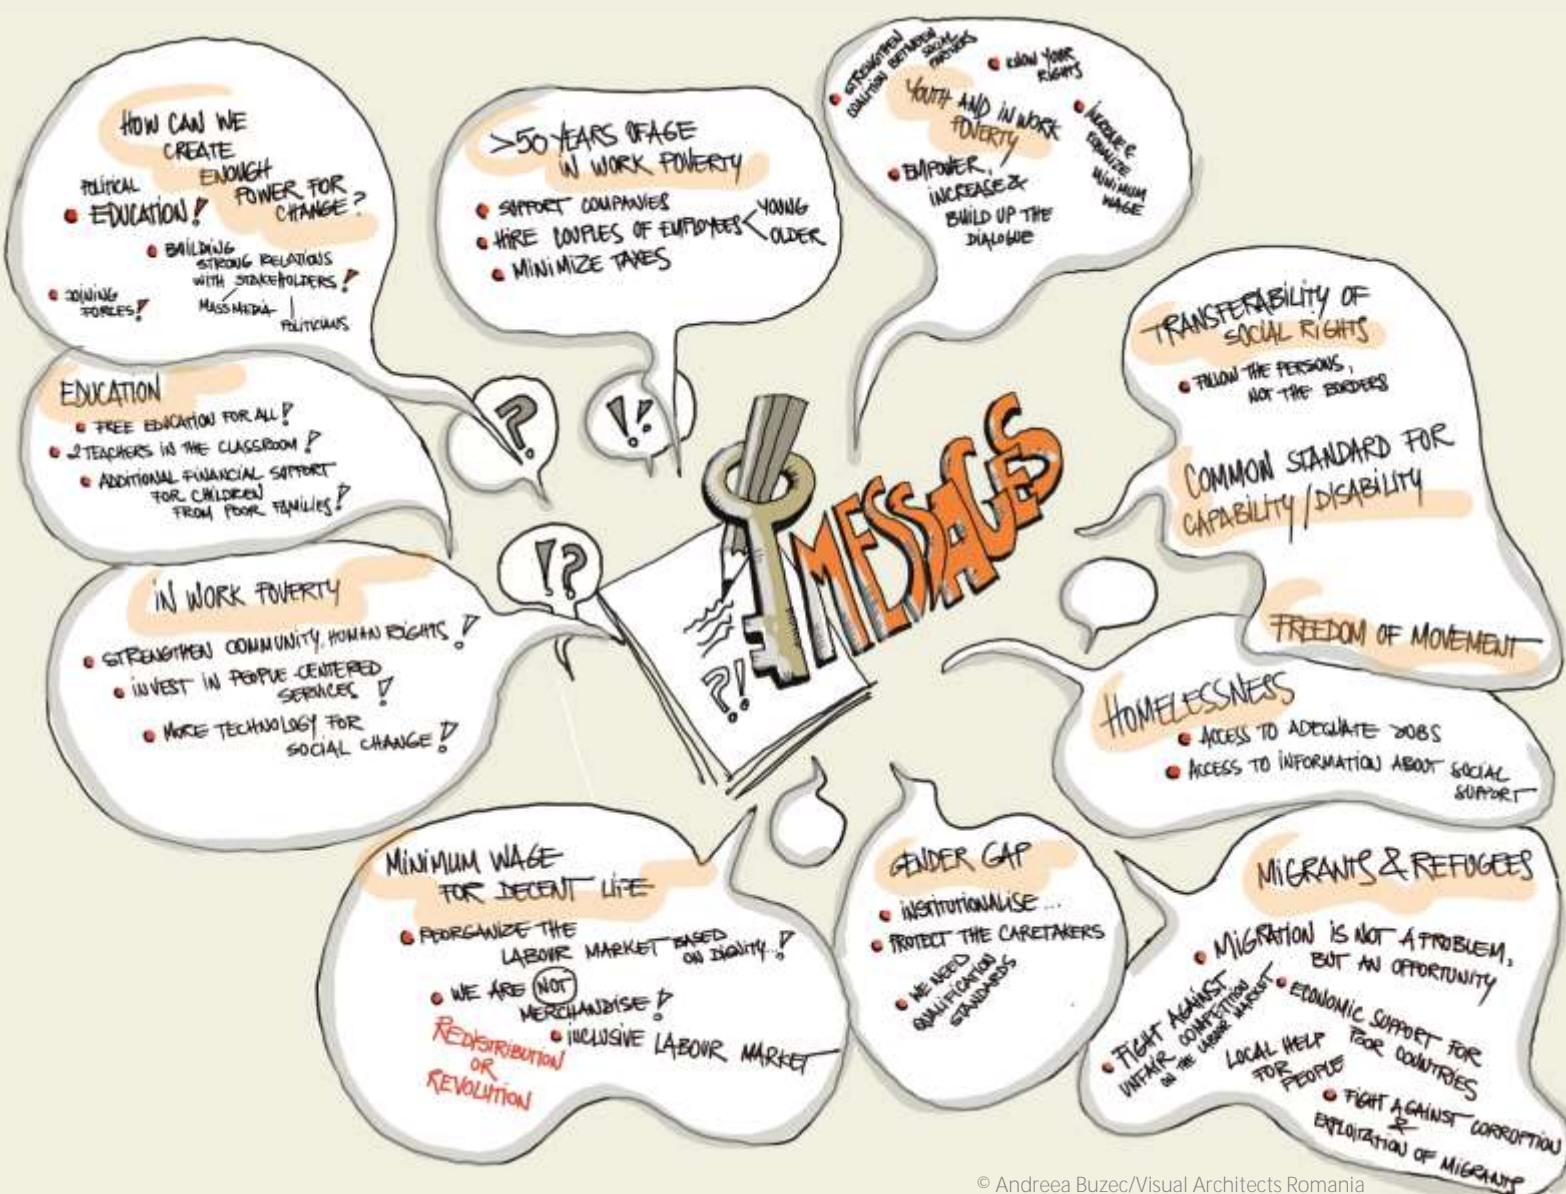 HOW CAN WE
CREATE
ENOUGH
POWER FOR
CHANGE?
POLITICAL
EDUCATION!
BUILDING
STRONG RELATIONS
WITH STAKEHOLDERS!
MASS MEDIA
POLITICIANS
JOINING
FORCES!
>50 YEARS OF AGE
IN WORK POVERTY
SUPPORT COMPANIES
HIRE COUPLES OF EMPLOYEES < YOUNG
OLDER
MINIMIZE TAXES
STRENGTHEN
COALITION BETWEEN
SOCIAL
PARTNERS
KNOW YOUR
RIGHTS
YOUTH AND IN WORK
POVERTY
INCREASE &
EQUALIZE
MINIMUM
WAGE
EMPOWER,
INCREASE &
BUILD UP THE
DIALOGUE
TRANSFERABILITY OF
SOCIAL RIGHTS
FOLLOW THE PERSONS,
NOT THE BORDERS
COMMON STANDARD FOR
CAPABILITY/DISABILITY
FREEDOM OF MOVEMENT
EDUCATION
FREE EDUCATION FOR ALL!
2 TEACHERS IN THE CLASSROOM!
ADDITIONAL FINANCIAL SUPPORT
FOR CHILDREN
FROM POOR FAMILIES!
?
!!
!?
?!
MESSAGES
IN WORK POVERTY
STRENGTHEN COMMUNITY, HUMAN RIGHTS!
INVEST IN PEOPLE-CENTERED
SERVICES!
MORE TECHNOLOGY FOR
SOCIAL CHANGE!
HOMELESSNESS
ACCESS TO ADEQUATE JOBS
ACCESS TO INFORMATION ABOUT SOCIAL
SUPPORT
MINIMUM WAGE
FOR DECENT LIFE
REORGANIZE THE
LABOUR MARKET BASED
ON DIGNITY...!
WE ARE NOT
MERCHANDISE!
INCLUSIVE LABOUR MARKET
REDISTRIBUTION
OR
REVOLUTION
GENDER GAP
INSTITUTIONALISE...
PROTECT THE CARETAKERS
WE NEED
QUALIFICATION
STANDARDS
MIGRANTS & REFUGEES
MIGRATION IS NOT A PROBLEM,
BUT AN OPPORTUNITY
FIGHT AGAINST
UNFAIR COMPETITION
ON THE LABOUR MARKET
ECONOMIC SUPPORT FOR
POOR COUNTRIES
LOCAL HELP
FOR
PEOPLE
FIGHT AGAINST CORRUPTION
&
EXPLOITATION OF MIGRANTS
© Andreea Buzec/Visual Architects Romania